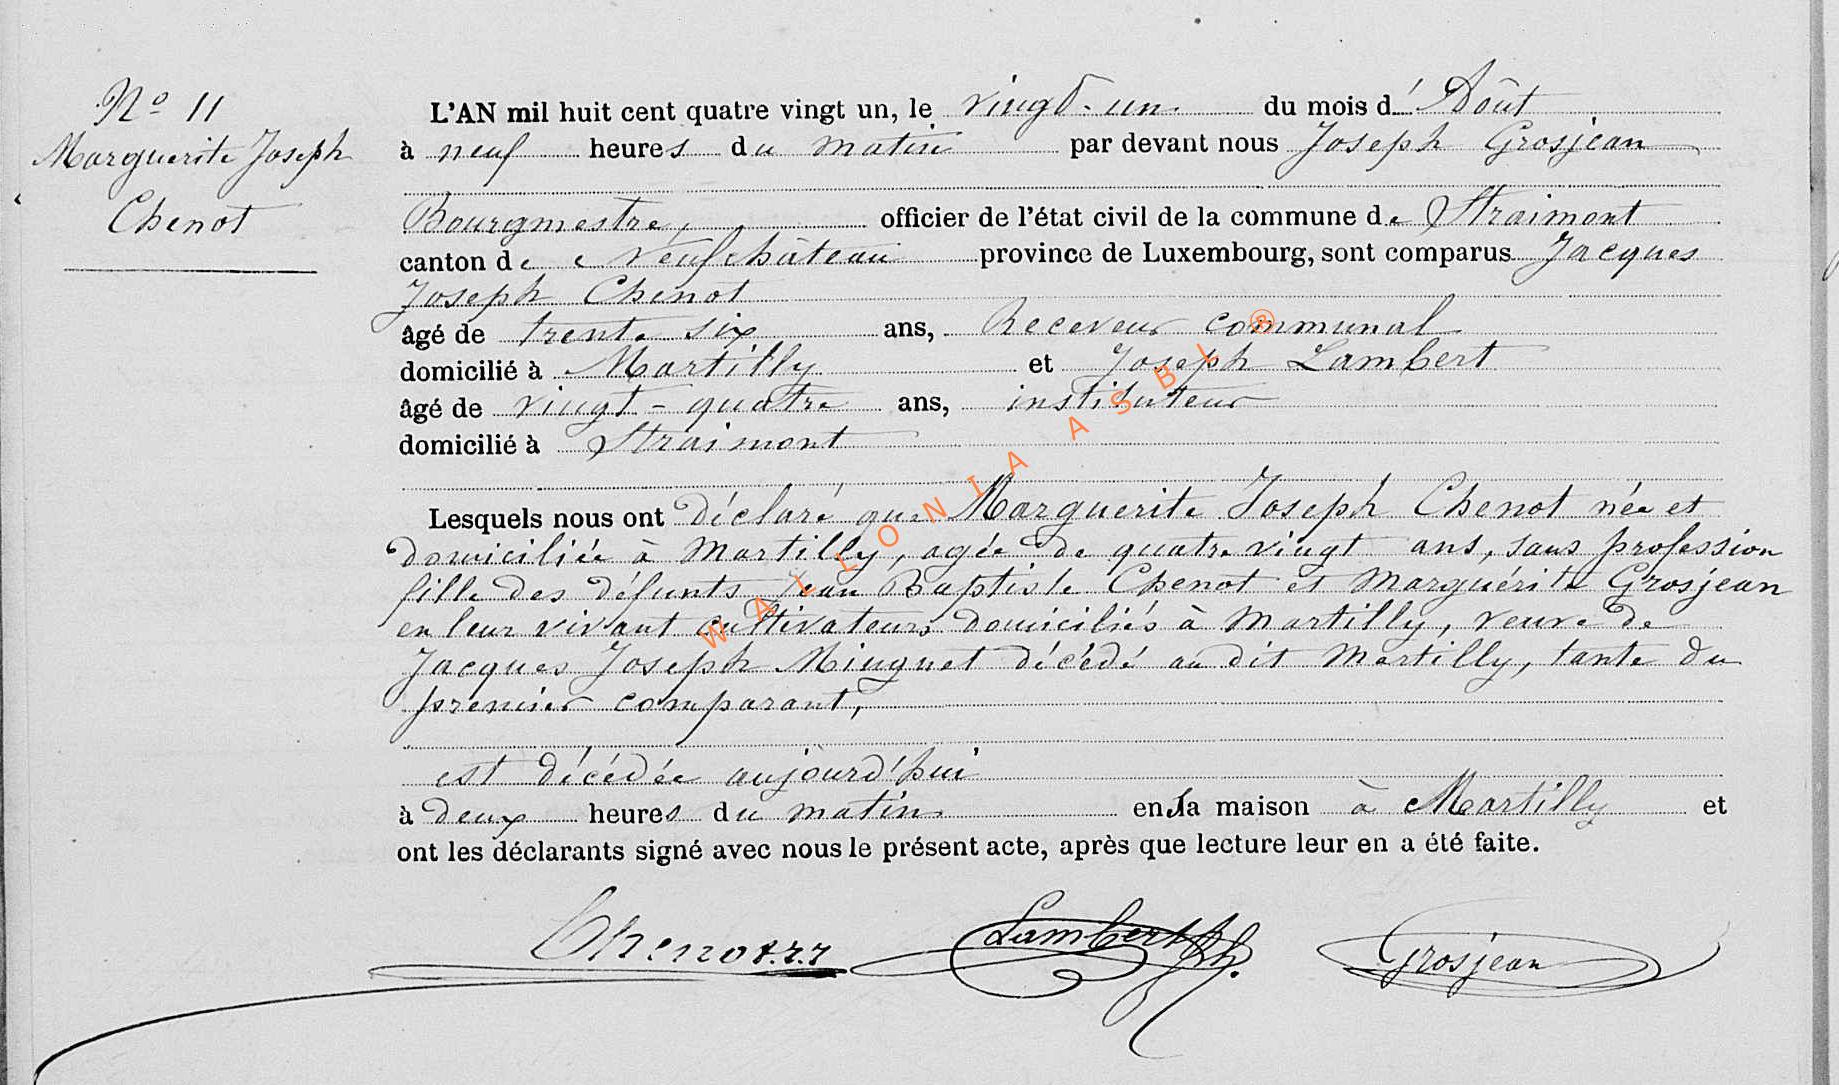 Nº 11
Marguerite Joseph
Chenot
L'AN mil huit cent quatre vingt un, le vingt-un du mois d' Août
à neuf heures du matin par devant nous Joseph Grosjean
Bourgmestre, officier de l'état civil de la commune de Straimont
canton de Neufchâteau province de Luxembourg, sont comparus Jacques
Joseph Chenot
âgé de trente six ans, Receveur communal
domicilié à Martilly et Joseph Lambert
âgé de vingt-quatre ans, instituteur
domicilié à Straimont
Lesquels nous ont déclaré que Marguerite Joseph Chenot née et
domiciliée à Martilly, agée de quatre vingt ans, sans profession
fille des défunts Jean Baptiste Chenot et Marguérite Grosjean
en leur vivant cultivateurs domiciliés à Martilly, veuve de
Jacques Joseph Minguet décédé au dit Martilly, tante du
premier comparant,
est décédée aujourd'hui
à deux heures du matin en sa maison à Martilly et
ont les déclarants signé avec nous le présent acte, après que lecture leur en a été faite.
Chenot J.J Lambert Jh. Grosjean
WALLONIA ASBL ®